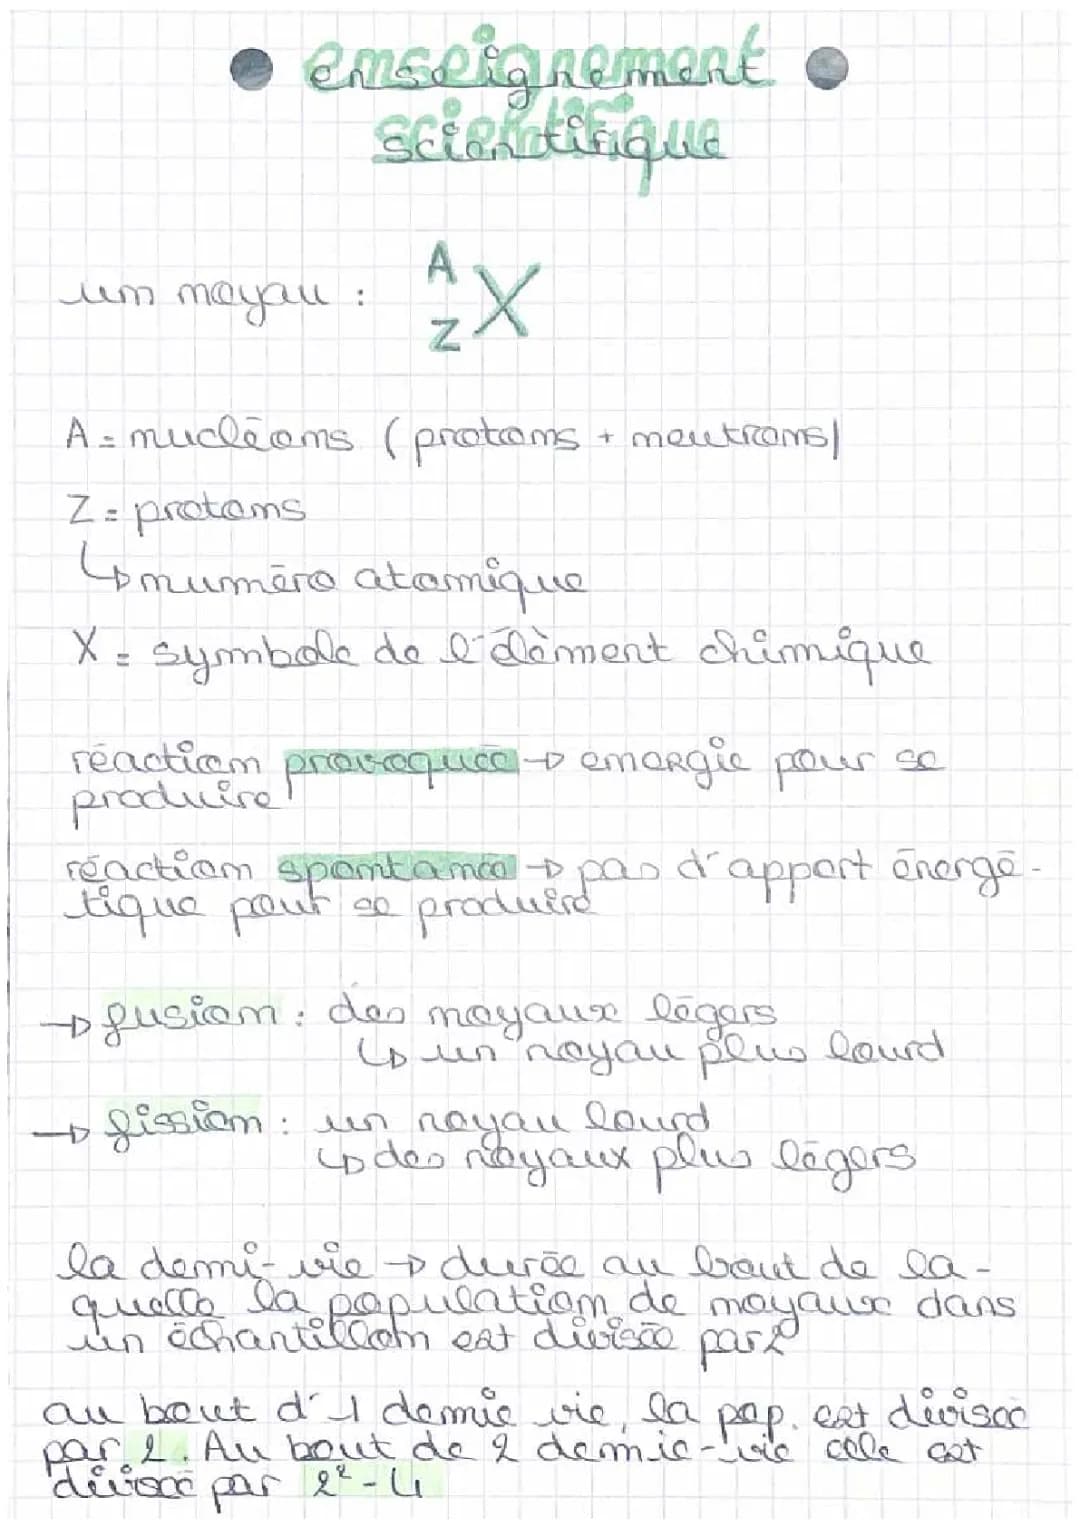 enseignement
scientifique
un noyau : A
Z X
A = nucléons (protons + neutrons)
Z = protons
↳ numéro atomique
X = symbole de l'élément chimique
réaction provoquée → energie pour se
produire
réaction spontanée → pas d'apport énergé-
tique pour se produire
→ fusion : des noyaux légers
↳ un noyau plus lourd
→ fission : un noyau lourd
↳ des noyaux plus légers
la demi-vie → durée au bout de la-
quelle la population de noyaux dans
un échantillon est divisée par 2
au bout d'1 demie vie, la pop. est divisée
par 2. Au bout de 2 demie-vie elle est
divisée par 2² = 4